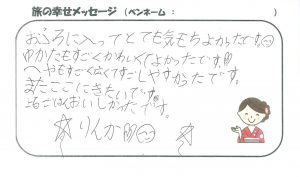 旅の幸せメッセージ (ペンネーム: )
おふろに入ってとても気もちよかったです
ゆかたもすごくかわいくてよかったです
へやもすごく広くてすごしやすかったです。
またここにきたいです。
よるごはんおいしかったです。
りんか